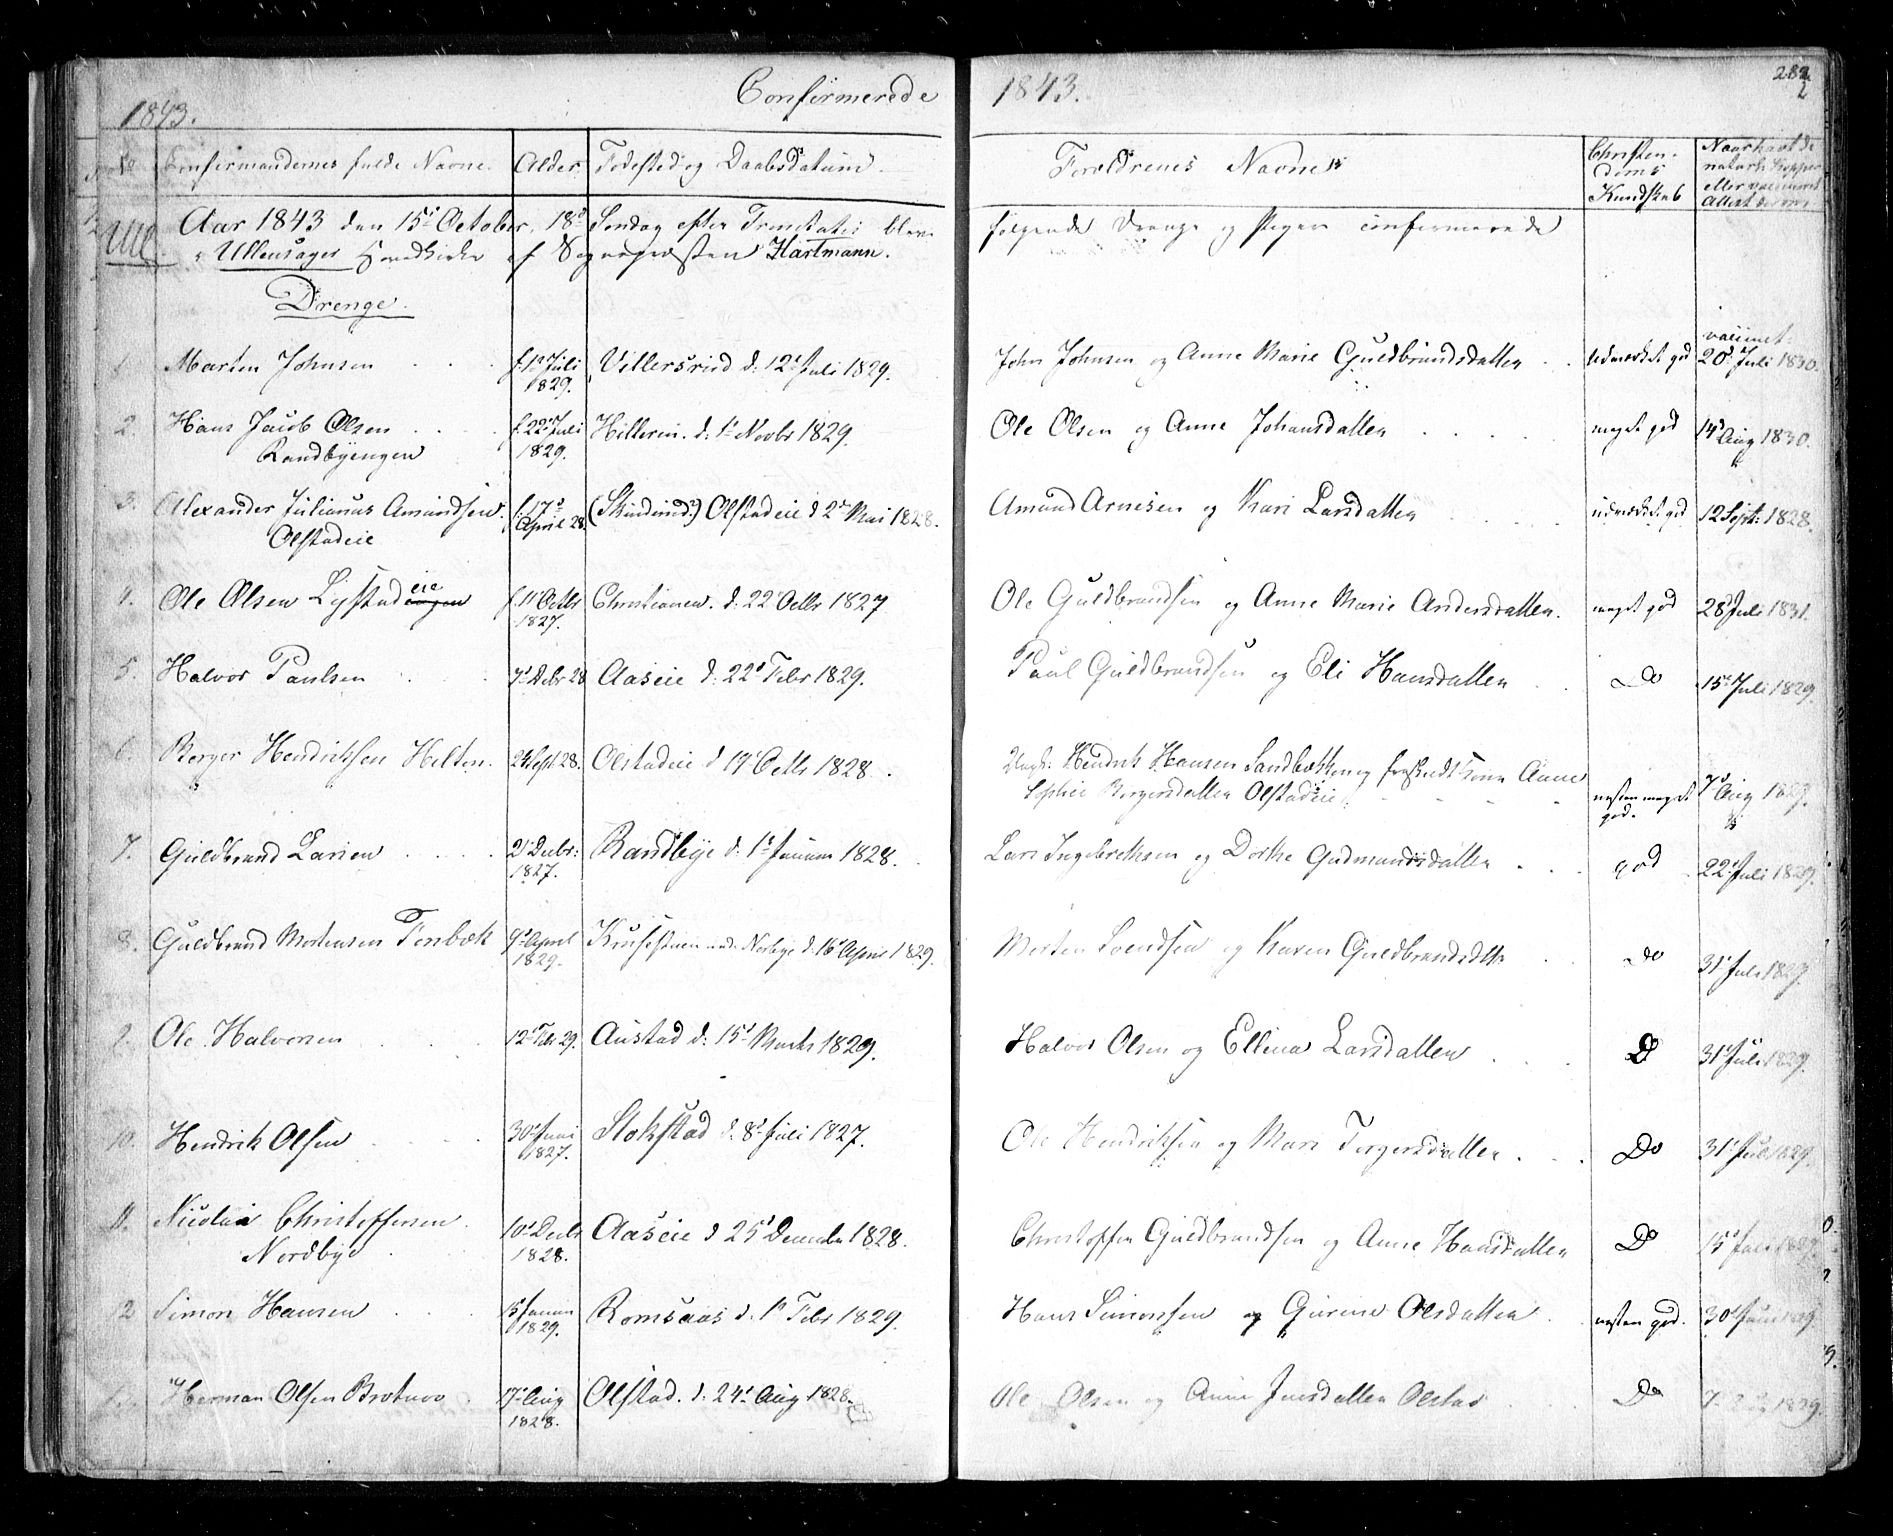 1843. Confirmerede
1843.
282
2
No Confirmandernes fulde Navne. Alder. Fødested og Daabsdatum. Forældrenes Navne Christen-
doms
Kundskab Naar havt de
naturl. Kopper
eller vaccineret
Attest derom
Ull. Aar 1843 den 15de October, 18de Søndag efter Trinitatis blev følgende Drenge og Piger confirmerede
i Ullensager Hovedkirke af Sognepræsten Hartmann.
Drenge.
1 Marten Johnsen f. 1st Juli
1829. Villersrud d. 12te Juli 1829. John Johnsen og Anne Marie Guldbrandsdatter udmærket god vaccinet
20d Juli 1830.
2. Hans Jacob Olsen
Randbyengen f. 22d Juli
1829. Hilleren. d. 1st Novbr 1829. Ole Olsen og Anne Johansdatter meget god 14d Aug 1830.
3. Alexander Julianus Amundsen
Olstadeie f. 17d
April 28. Olstadeie d 2d Mai 1828. Amund Arnesen og Kari Larsdatter udmærket god 12 Sept: 1828.
4. Ole Olsen Lystadeie f. 11 Octbr
1827. d. 22 Octbr 1827 Ole Guldbrandsen og Anne Marie Andersdatter. meget god 28d Juli 1831.
5. Halvor Paulsen 7d Debr 28 Aaseie d. 22d Febr 1829. Paul Guldbrandsen og Eli Hansdatter Do 15d Juli 1829.
6. Borger Hendriksen Helten. 24 Sept 28. Olstadeie d 19d Octbr 1828. Ungk: Hendrik Hansen Sandbækken og fraskildt Kone Anne
Sophie Borgersdatter Olstadeie. nesten meget
god. 7d Aug 1829.
7. Guldbrand Larsen 21 Decbr:
1827. Randbye d. 1st Januar 1828. Lars Ingebretsen og Dorthe Gudmundsdatter god 22d Juli 1829.
8. Guldbrand Mortensen Fonbæk 9d April
1829. d. 16d April 1829. Morten Svendsen og Karen Guldbrandsdtr Do 31d Juli 1829.
9. Ole Halvorsen 12d Febr 29. Austad d. 15d Marts 1829. Halvor Olsen og Ellina Larsdatter Do 31d Juli 1829.
10. Hendrik Olsen 30d Juni
1827. Stokstad d. 8d Juli 1827. Ole Hendriksen og Mari Torgersdatter Do 31d Juli 1829.
11. Nicolai Christoffersen
Nordbye 10d Decbr
1828. Aaseie d 25d December 1828. Christopher Guldbrandsen og Anne Hansdatter Do 15d Juli 1829.
12 Simon Hansen 15 Januar
1829. Romsaas d. 1st Febr 1829. Hans Simonsen og Gurine Olsdatter nesten god. 30d Juni 1829.
13. Herman Olsen Brotnov 17d Aug
1828. Olstad. d. 24d Aug 1828. Ole Olsen og Anne Jensdatter Olstad Do 7d Aug 1829.